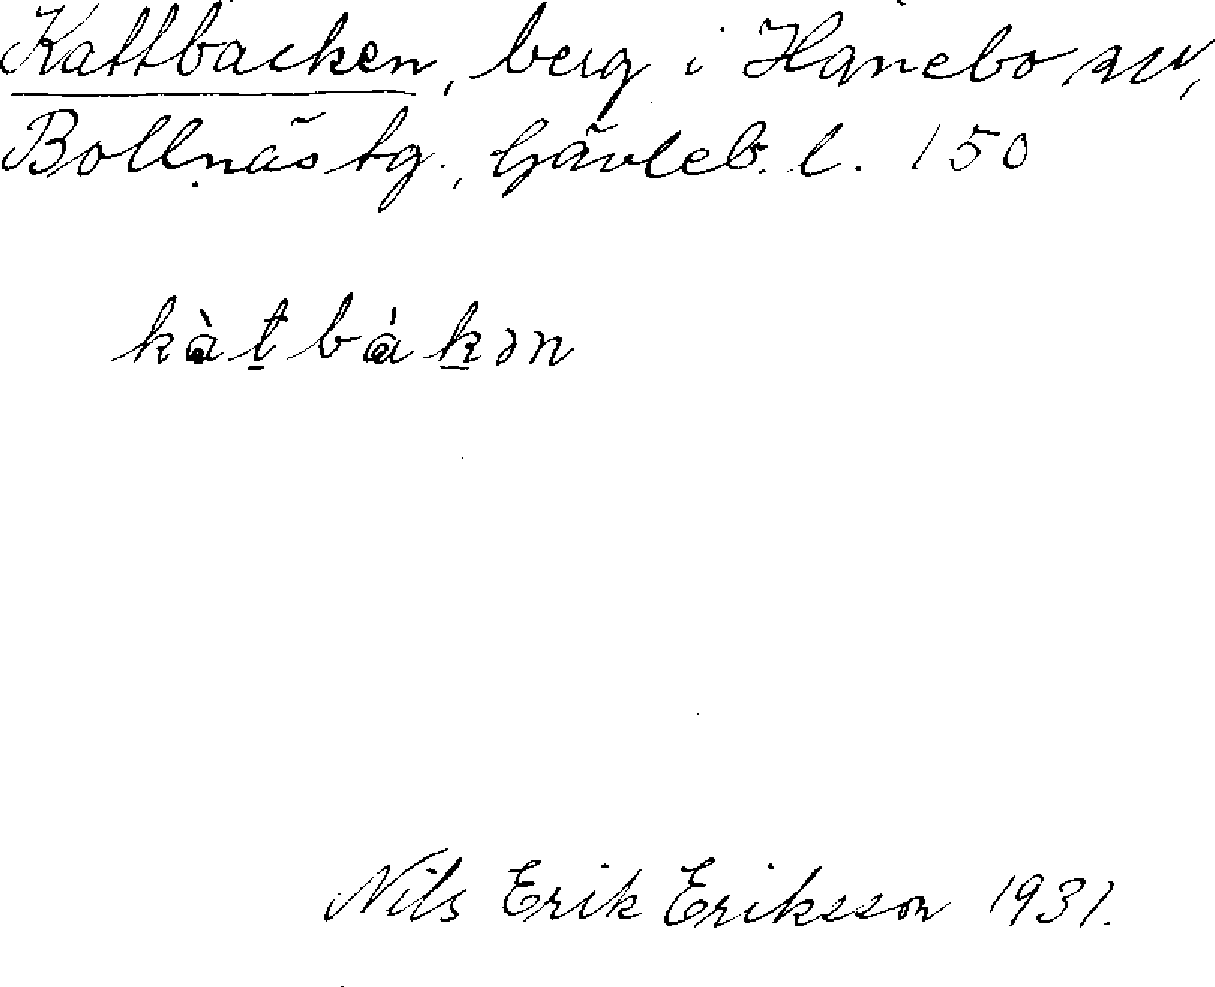 Kattbacken, berg i Hanebo sn,
Bollnäs tg., Gävleb. l. 150
kàt̠bákən
Nils Erik Eriksson 1931.